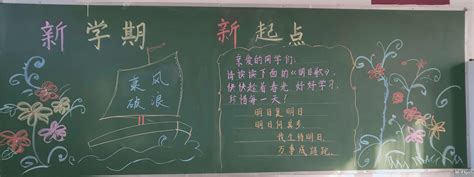 新学期 新起点
乘风
破浪
亲爱的同学们:
请读读下面的《明日歌》,
伙伴趁着春光 好好学习,
珍惜每一天!
明日复明日
明日何其多
我生待明日
万事成蹉跎